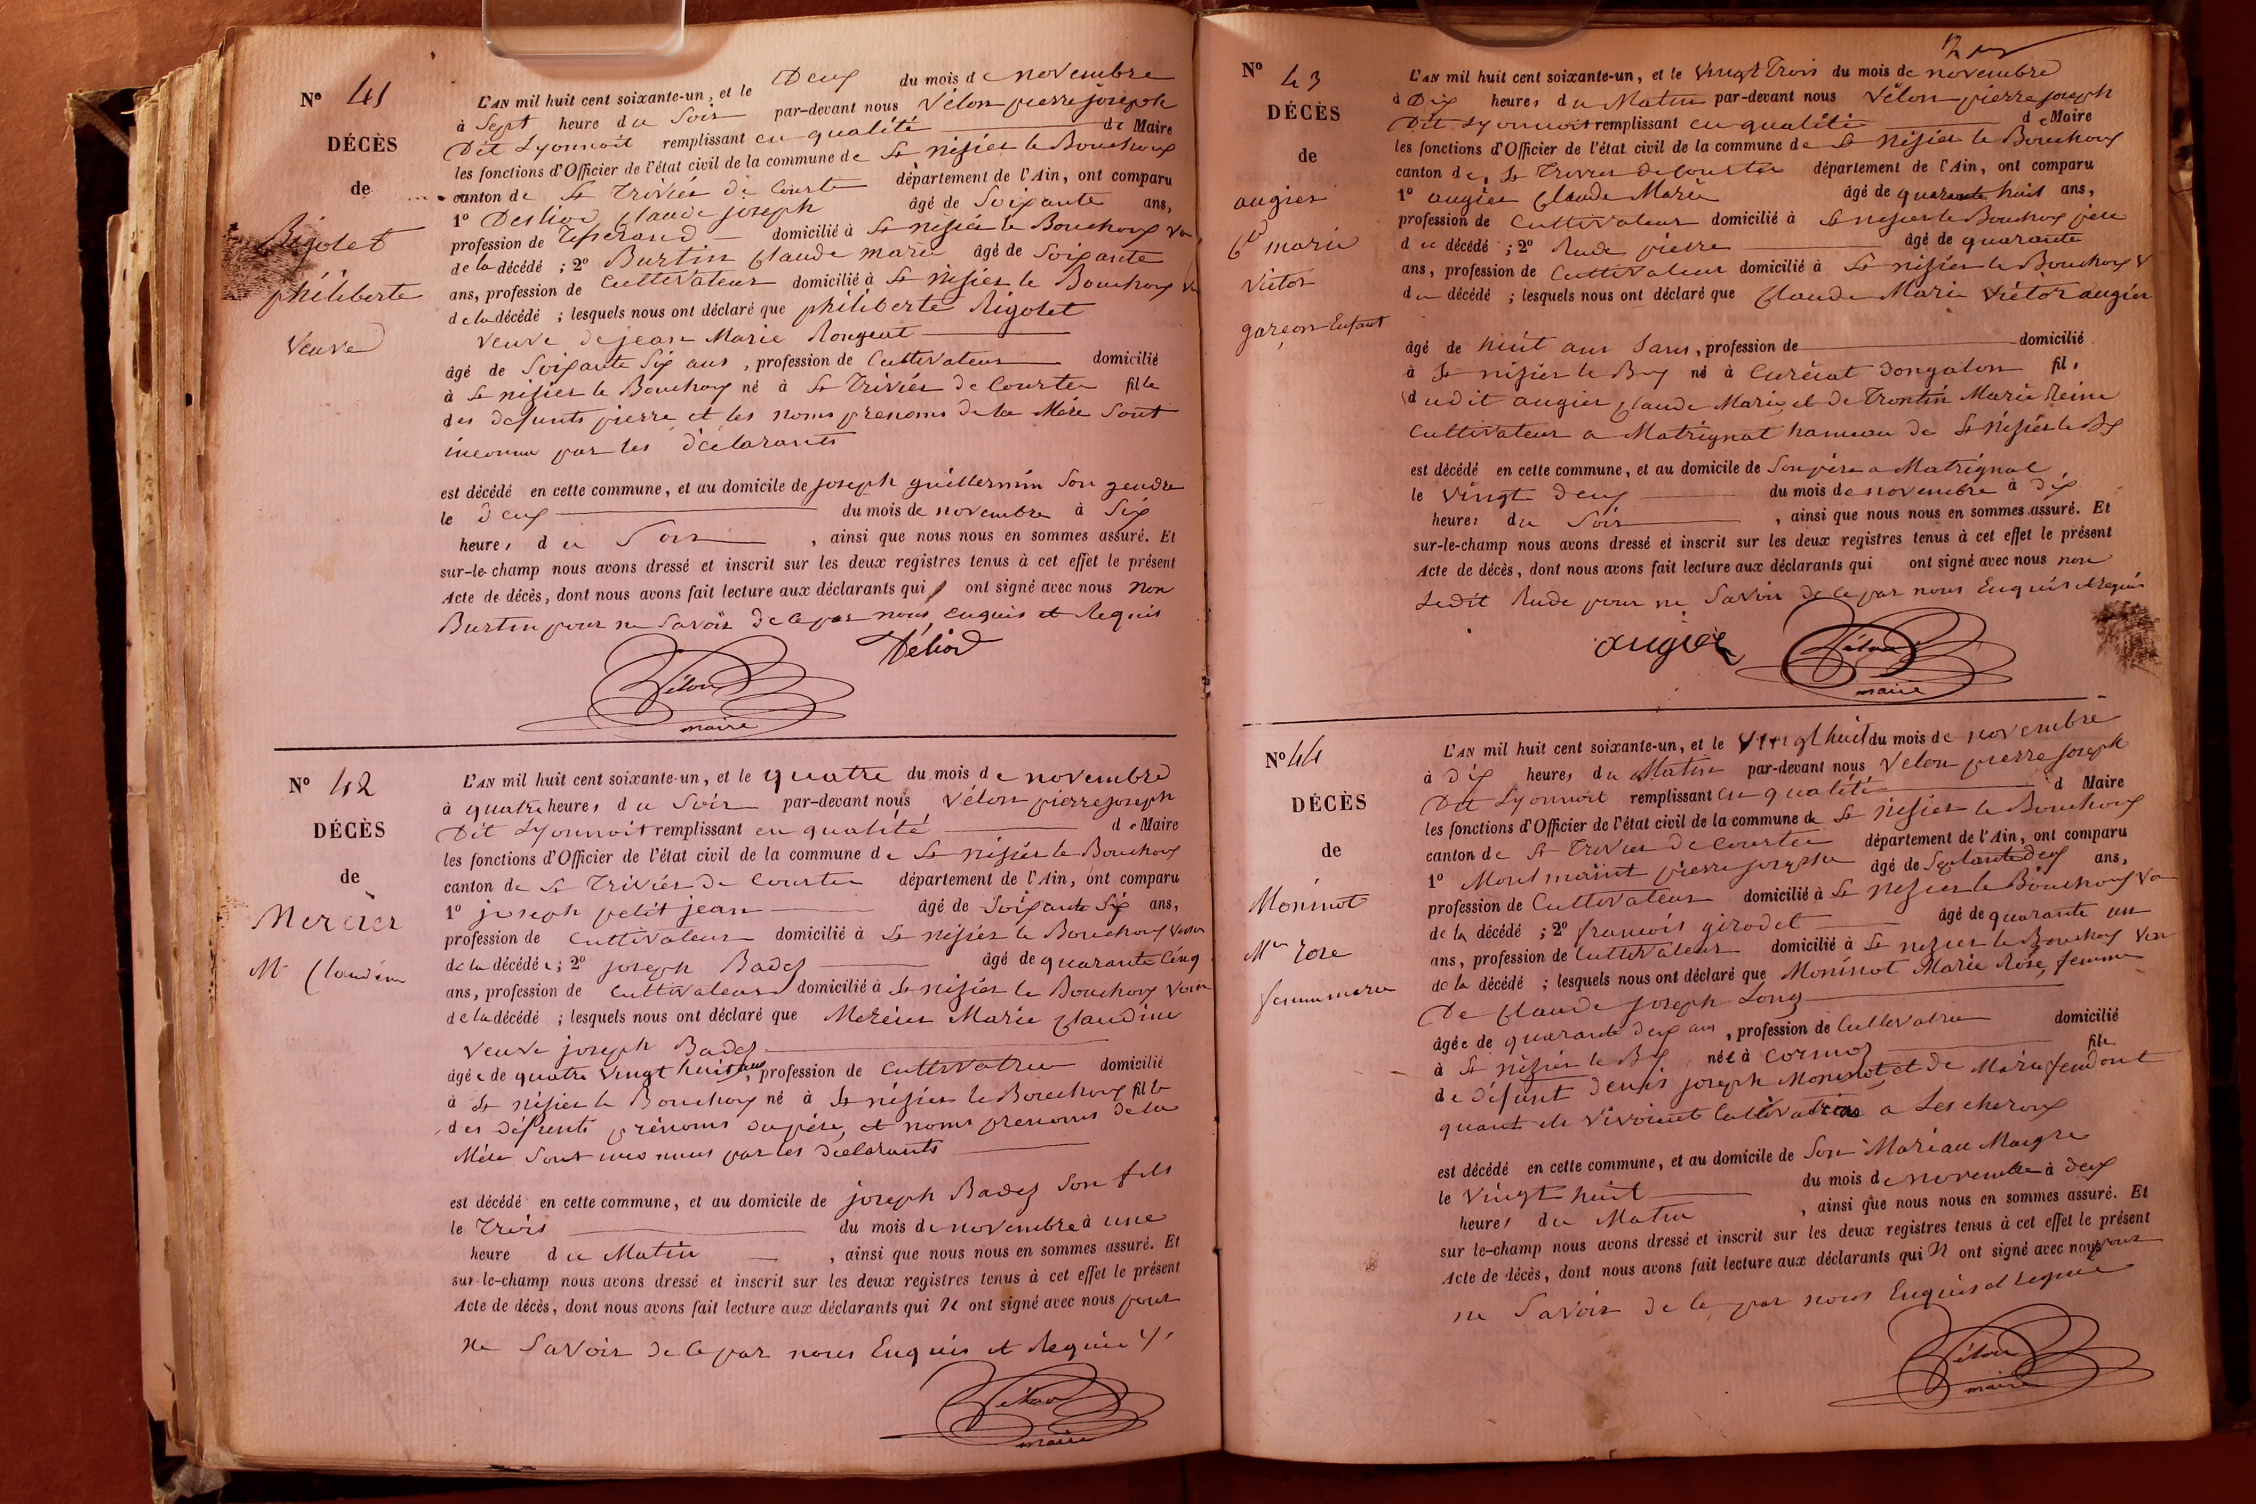 N° 41
DÉCÈS
de
Rigolet
philiberte
Veuve
L'AN mil huit cent soixante-un, et le Deux du mois de novembre
à Sept heure du Soir par-devant nous Vélon pierre joseph
Dit Lyonnoit remplissant en qualité de Maire
les fonctions d'Officier de l'état civil de la commune de St nisier le Bouchoux
canton de St Trivier de Courte département de l'Ain, ont comparu
1° Desliod Claude joseph âgé de Soixante ans,
profession de Tisserand domicilié à St nisier le Bouchoux
de la décédé ; 2° Burtin Claude marie âgé de Soixante
ans, profession de Cultivateur domicilié à St nisier le Bouchoux
de la décédé ; lesquels nous ont déclaré que philiberte Rigolet
veuve de jean Marie Rongeat
âgé de Soixante Six ans, profession de Cultivateur domicilié
à St nisier le Bouchoux né à St Trivier de Courte fille
des defunts pierre et les noms prenoms de la Mère Sont
inconnu par les déclarants
est décédé en cette commune, et au domicile de joseph guillermin Son gendre
le deux du mois de novembre à Six
heures du Soir, ainsi que nous nous en sommes assuré. Et
sur-le-champ nous avons dressé et inscrit sur les deux registres tenus à cet effet le présent
Acte de décès, dont nous avons fait lecture aux déclarants qui ont signé avec nous non
Burtin pour ne Savoir de ce par nous enquis et Requis
Déliod
Vélon
maire
N° 42
DÉCÈS
de
Mercier
Me Claudine
L'AN mil huit cent soixante-un, et le quatre du mois de novembre
à quatre heures du Soir par-devant nous Vélon pierre joseph
Dit Lyonnoit remplissant en qualité de Maire
les fonctions d'Officier de l'état civil de la commune de St nisier le Bouchoux
canton de St Trivier de Courte département de l'Ain, ont comparu
1° joseph petit jean âgé de Soixante Six ans,
profession de Cultivateur domicilié à St nisier le Bouchoux voisin
de la décédée ; 2° joseph Badez âgé de quarante Cinq
ans, profession de Cultivateur domicilié à St nisier le Bouchoux voisin
de la décédé ; lesquels nous ont déclaré que Mercier Marie Claudine
veuve joseph Badez
âgée de quatre vingt huit ans, profession de Cultivatrice domicilié
à St nisier le Bouchoux né à St nisier le Bouchoux fille
des défunts prénoms du père, et noms prenoms de la
Mère Sont inconnus par les déclarants
est décédé en cette commune, et au domicile de joseph Badez Son fils
le Trois du mois de novembre à une
heure du Matin, ainsi que nous nous en sommes assuré. Et
sur-le-champ nous avons dressé et inscrit sur les deux registres tenus à cet effet le présent
Acte de décès, dont nous avons fait lecture aux déclarants qui N' ont signé avec nous pour
ne Savoir de ce par nous Enquis et Requis
Vélon
maire
N° 43
DÉCÈS
de
augier
Cde marie
victor
garçon Enfant
L'AN mil huit cent soixante-un, et le vingt Trois du mois de novembre
à Dix heures du Matin par-devant nous Vélon pierre joseph
Dit Lyonnoit remplissant en qualité de Maire
les fonctions d'Officier de l'état civil de la commune de St nisier le Bouchoux
canton de St Trivier de Courte département de l'Ain, ont comparu
1° augier Claude Marie âgé de quarante huit ans,
profession de Cultivateur domicilié à St nisier le Bouchoux père
du décédé ; 2° Rude pierre âgé de quarante
ans, profession de Cultivateur domicilié à St nisier le Bouchoux
du décédé ; lesquels nous ont déclaré que Claude Marie Victor augier
âgé de huit ans Sans, profession de domicilié
à St nisier le Bx né à Curciat dongalon fils
dudit augier Claude Marie et de Trontin Marie Reine
Cultivateur a Matrignat hameau de St nisier le Bx
est décédé en cette commune, et au domicile de Son père a Matrignat
le vingt deux du mois de novembre à dix
heures du Soir, ainsi que nous nous en sommes assuré. Et
sur-le-champ nous avons dressé et inscrit sur les deux registres tenus à cet effet le présent
Acte de décès, dont nous avons fait lecture aux déclarants qui ont signé avec nous non
Ledit Rude pour ne Savoir de ce par nous Enquis et Requis
augier
Vélon
maire
N° 44
DÉCÈS
de
Moninot
Mie rose
femme marie
L'AN mil huit cent soixante-un, et le vingt huit du mois de novembre
à dix heures du Matin par-devant nous Velon pierre joseph
Dit Lyonnoit remplissant en qualité d Maire
les fonctions d'Officier de l'état civil de la commune de St nisier le Bouchoux
canton de St Trivier de Courte département de l'Ain, ont comparu
1° pierre joseph âgé de Septante deux ans,
profession de Cultivateur domicilié à St nisier le Bouchoux
de la décédé ; 2° francois girodet âgé de quarante un
ans, profession de Cultivateur domicilié à St nisier le Bouchoux
de la décédé ; lesquels nous ont déclaré que Moninot Marie Rose femme
De Claude joseph Long
âgée de quarante deux ans, profession de Cultivatrice domicilié
à St nisier le Bx née à Cormoz fille
de défunt denis joseph Moninot et de Marie feudont
quant ils vivoient Cultivateurs a Lescheroux
est décédé en cette commune, et au domicile de Son Mari au Maigre
le vingt huit du mois de novembre à deux
heures du Matin, ainsi que nous nous en sommes assuré. Et
sur le-champ nous avons dressé et inscrit sur les deux registres tenus à cet effet le présent
Acte de décès, dont nous avons fait lecture aux déclarants qui N' ont signé avec nous pour
ne Savoir de ce par nous Enquis et requis
Vélon
maire